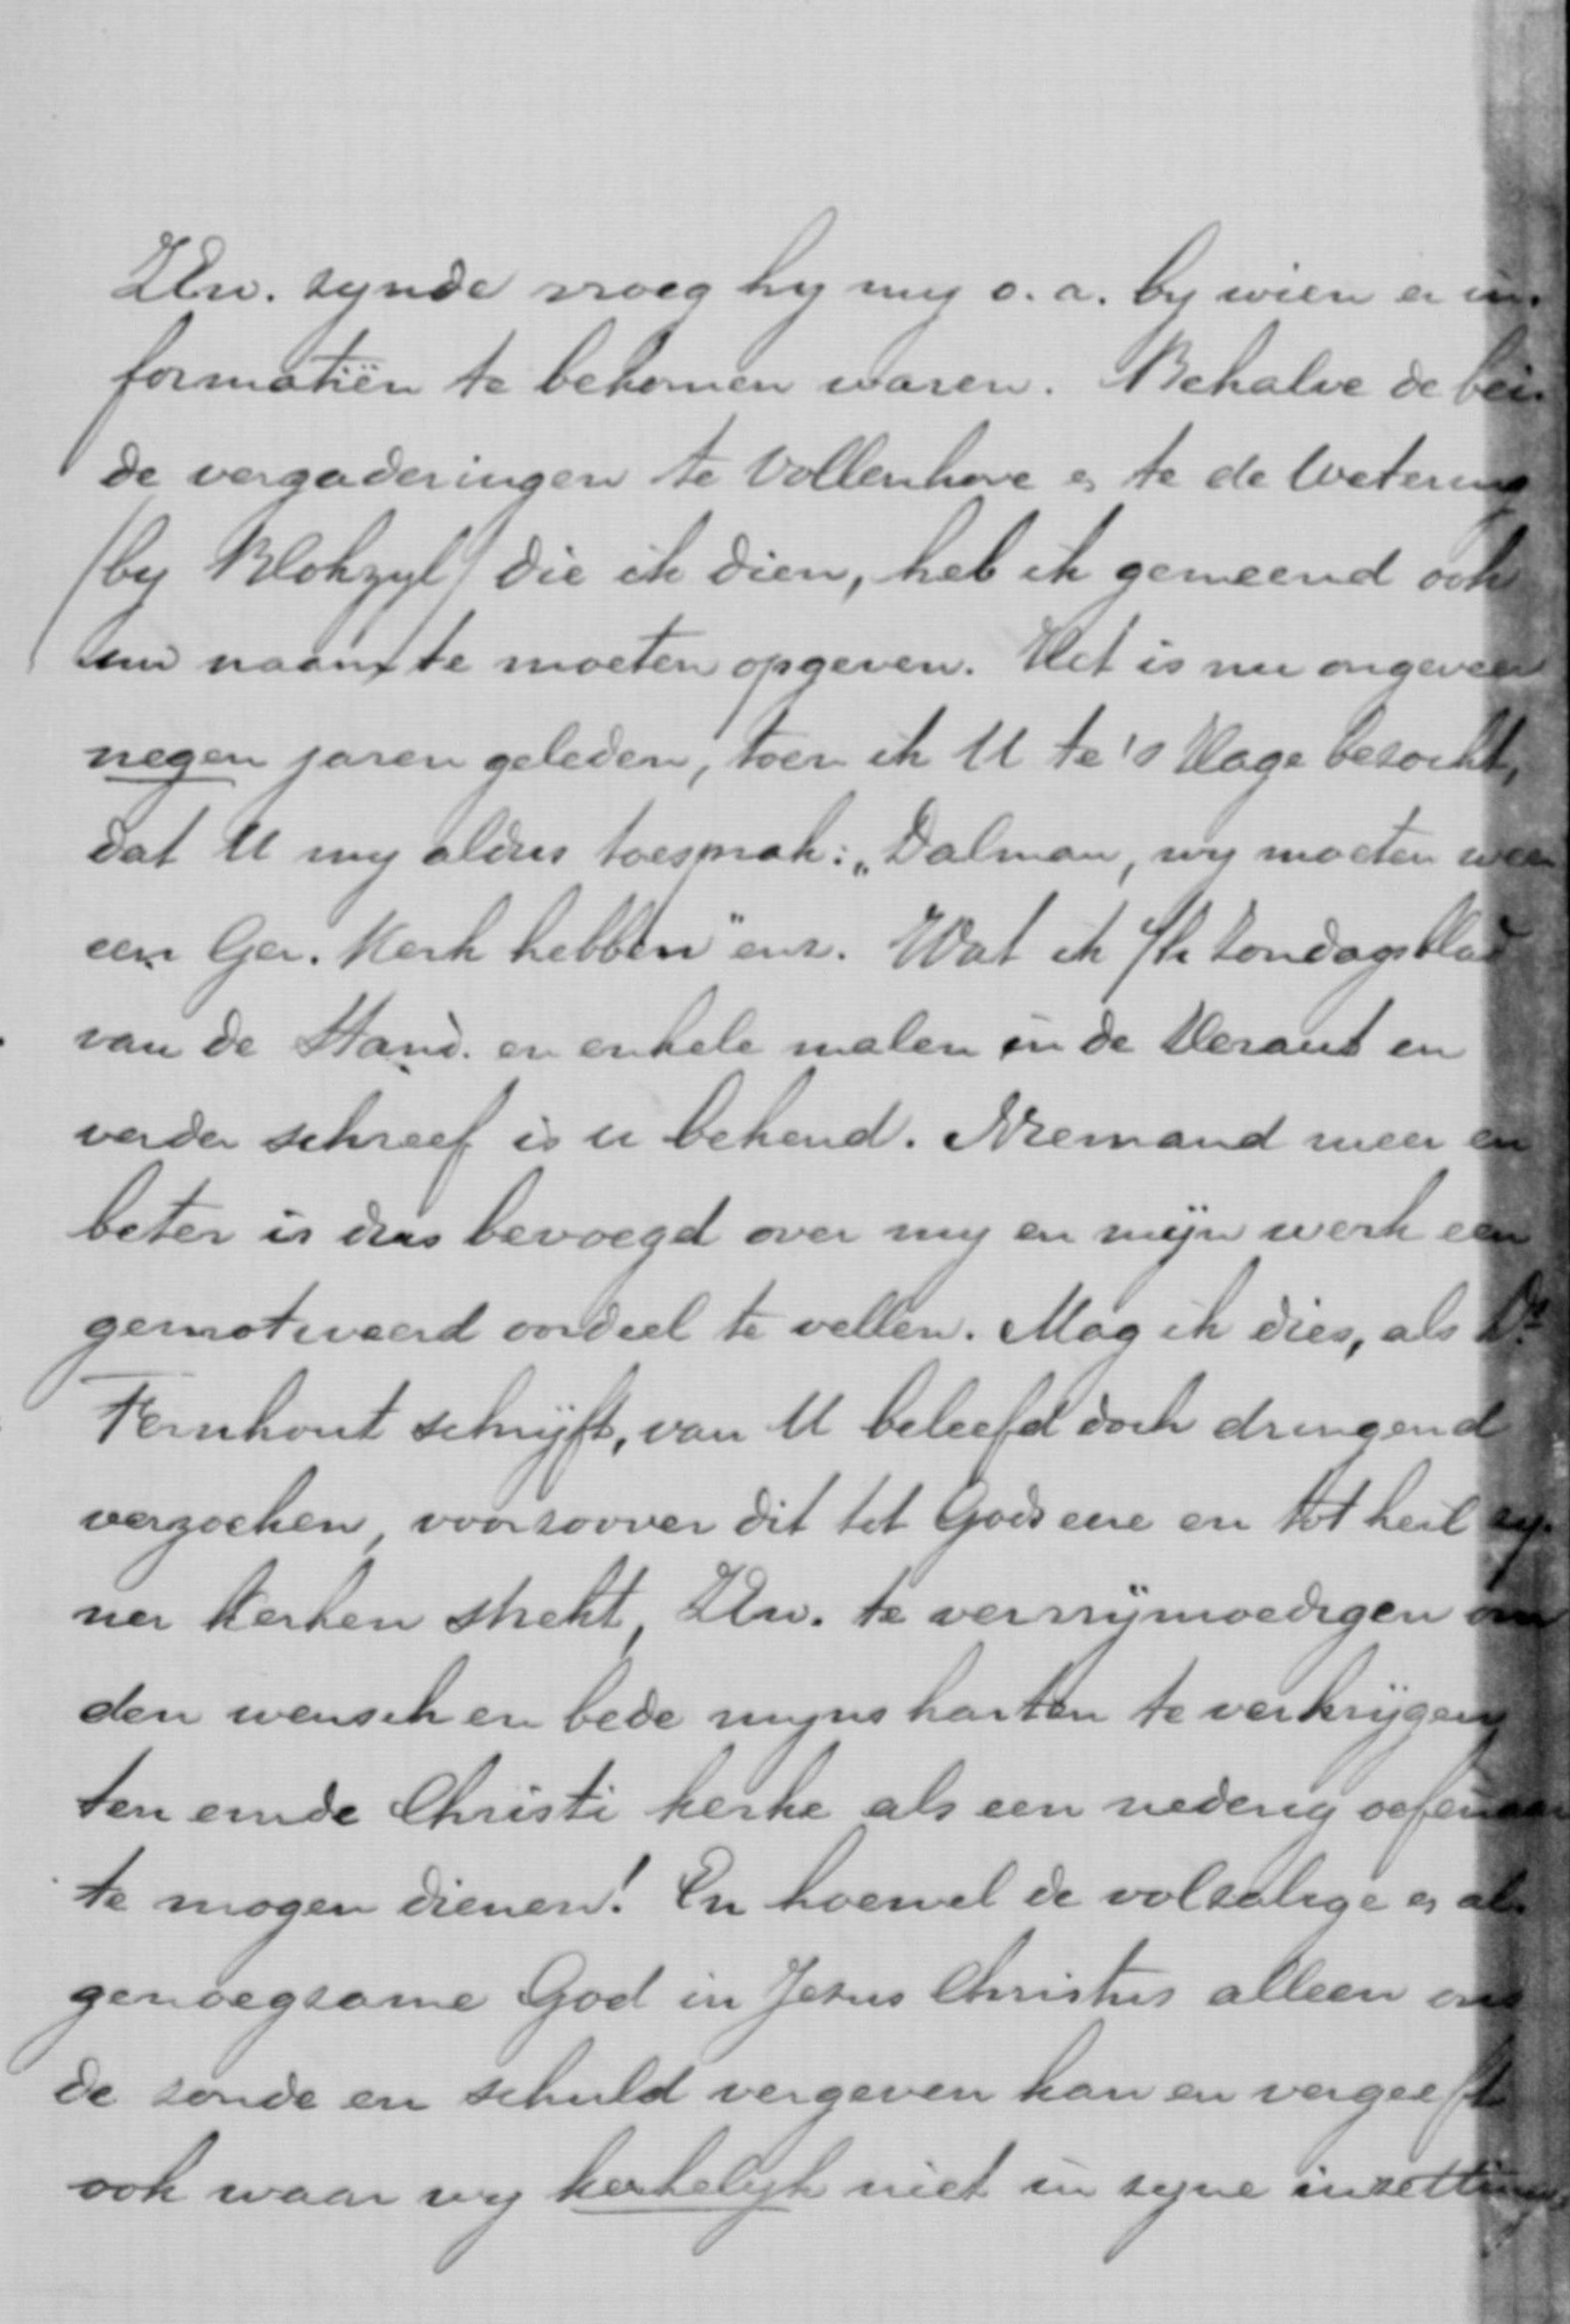 ZEw. zynde vroeg hy my o. a. by wien er in-
formatiën te bekomen waren. Behalve de bei-
de vergaderingen te Vollenhove & te de Wetering
(by Blokzyl) die ik dien, heb ik gemeend ook
uw naam te moeten opgeven. Het is nu ongeveer
negen jaren geleden, toen ik U te 's Hage bezocht,
dat U my aldus toesprak: „Dalman, wy moeten weer
een Ger. Kerk hebben" enz. Wat ik Zondagsblad
van de Stand. en enkele malen in de Heraut en
verder schreef is u bekend. Niemand meer en
beter is dus bevoegd over my en mijn werk een
gemotiveerd oordeel te vellen. Mag ik dies, als Ds.
Fernhout schrijft, van U beleefd doch dringend
verzoeken, voorzoover dit tot Gods eere en tot heil zy-
ner Kerken strekt, ZEw. te verrijmoedigen om
den wensch en bede myns harten te verkrijgen,
ten einde Christi kerke als een nederig oefenaar
te mogen dienen! En hoewel de volzalige & al-
genoegzame God in Jezus Christus alleen ons
de zonde en schuld vergeven kan en vergeeft
ook waar wy kerkelyk niet in zyne inzettingen